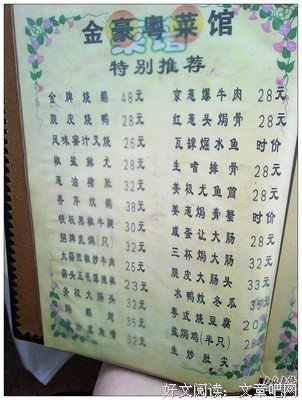 金豪粤菜馆
特别推荐
金牌烧鹅 48元
脆皮烧鸭 28元
风味蜜汁叉烧 26元
椒盐鲜尤 28元
葱油猪肚 32元
香芹炆鹅 38元
铁板黑椒牛 30元
招牌乳鸽(只) 32元
大蒜豉椒炒牛肉 25元
蒜头五花爆辣椒 23元
椒大肠头 32元
鹅 35元
鱼 32元
京葱爆牛肉 28元
红葱头焗骨 28元
瓦罉焗水鱼 时价
生嗜排骨 28元
姜椒尤鱼筒 28元
姜葱焗黄鳝 时价
咸蛋让大肠 28元
三杯焗大肠 32元
脆皮大肠头 33元
水鸭炆冬瓜 35元
粤式烧豆腐 20元
盐焗鸡(半只) 28元
生炒肚尖
好文阅读:文章吧网